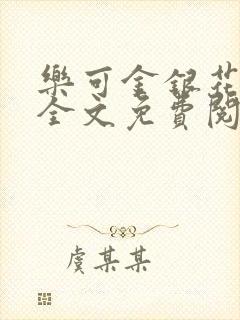 樂可金銀花
全文免費閱
虞某某